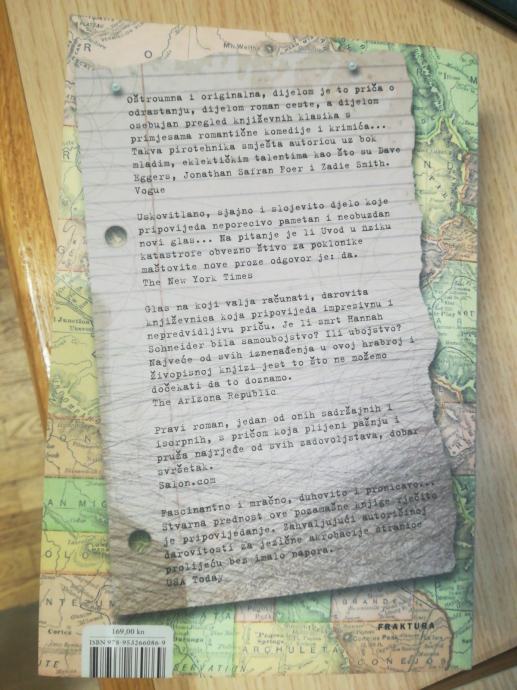 Mt. Wetha
Oštroumna i originalna, dijelom je to priča o
odrastanju, dijelom roman ceste, a dijelom
osebujan pregled književnih klasika s
primjesama romantične komedije i krimića...
Takva pirotehnika smješta autoricu uz bok
mladim, eklektičkim talentima kao što su Dave
Eggers, Jonathan Safran Foer i Zadie Smith.
Vogue
Uskovitlano, sjajno i slojevito djelo koje
pripovijeda neporecivo pametan i neobuzdan
novi glas... Na pitanje je li Uvod u fiziku
katastrofe obvezno štivo za poklonike
maštovite nove proze odgovor je: da.
The New York Times
Glas na koji valja računati, darovita
književnica koja pripovijeda impresivnu i
nepredvidljivu priču. Je li smrt Hannah
Schneider bila samoubojstvo? Ili ubojstvo?
Najveće od svih iznenađenja u ovoj hrabroj i
živopisnoj knjizi jest to što ne možemo
dočekati da to doznamo.
The Arizona Republic
Pravi roman, jedan od onih sadržajnih i
iscrpnih, s pričom koja plijeni pažnju i
pruža najrjeđe od svih zadovoljstava, dobar
svršetak.
Salon.com
Fascinantno i mračno, duhovito i pronicavo...
Stvarna prednost ove pozamašne knjige rječito
je pripovijedanje. Zahvaljujući autoričinoj
darovitosti za jezične akrobacije stranice
prolijeću bez imalo napora.
USA Today
169,00 kn
ISBN 978-953266086-9
FRAKTURA
Cortez
Durango
Pagosa
Springs
ARCHULETA
CONEJOS
GRANDE